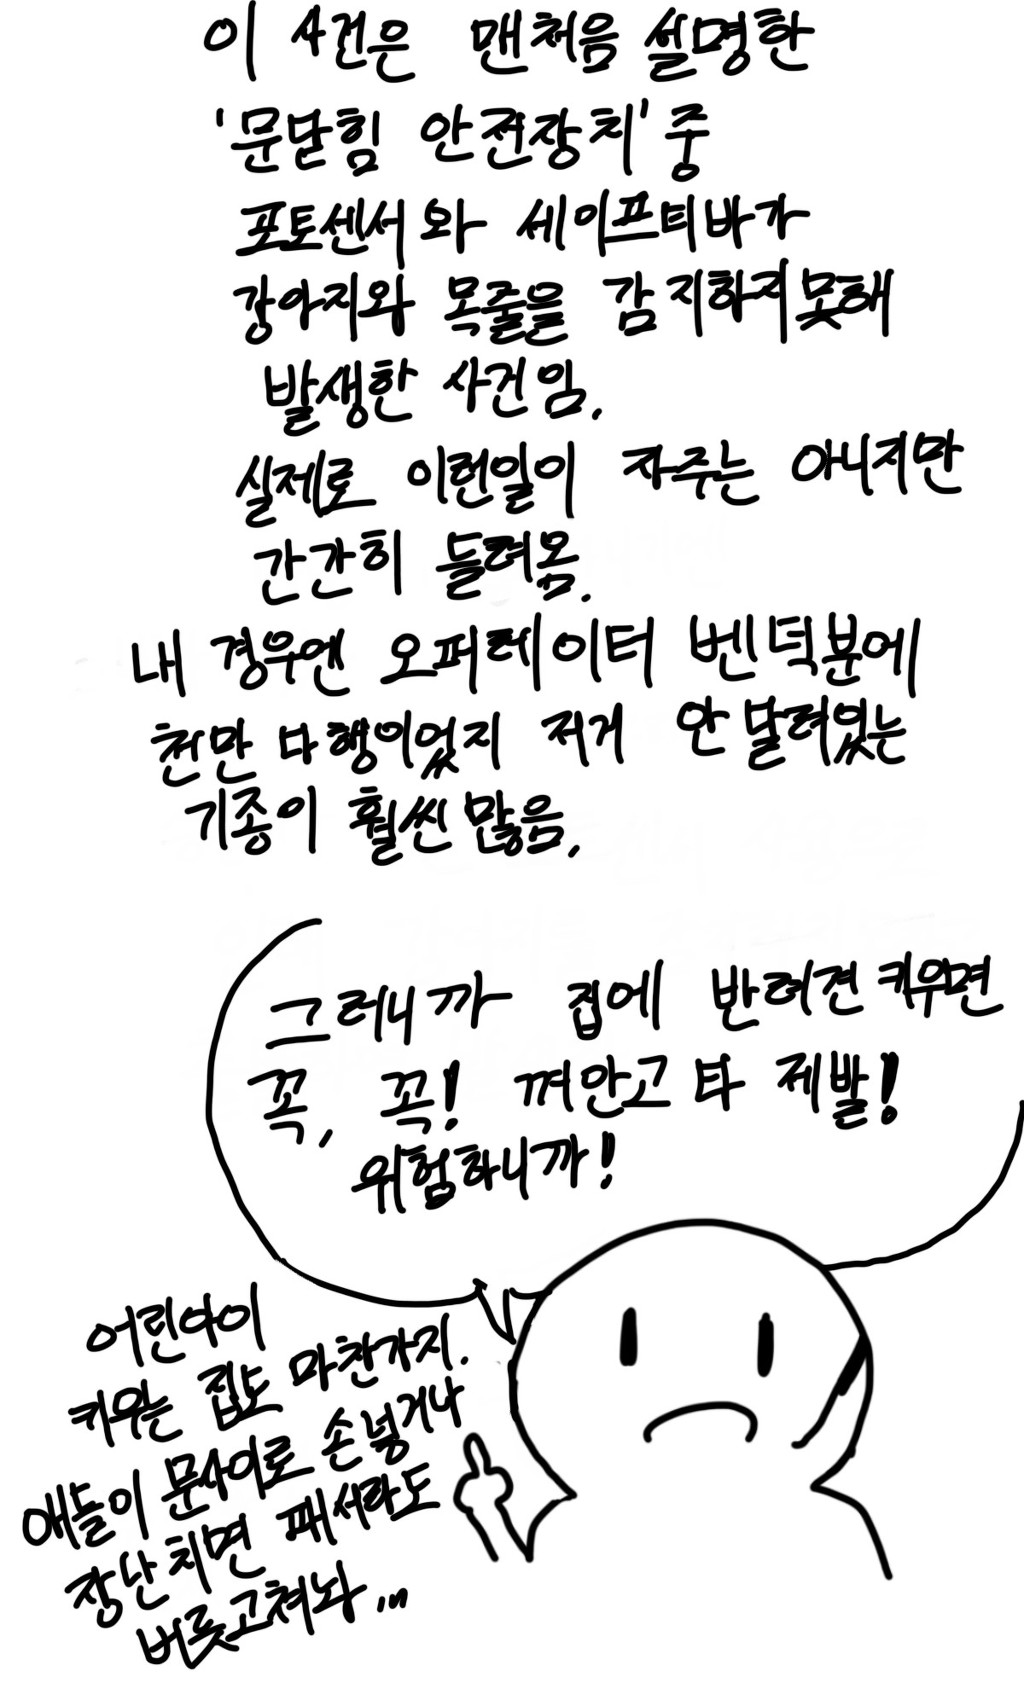 이 사건은 맨처음 설명한
'문닫힘 안전장치' 중
포토센서와 세이프티바가
강아지와 목줄을 감지하지못해
발생한 사건임.
실제로 이런일이 자주는 아니지만
간간히 들려옴.
내 경우엔 오퍼레이터 벤덕분에
천만 다행이었지 저거 안달려있는
기종이 훨씬 많음.
그러니까 집에 반려견 키우면
꼭, 꼭! 껴안고 타 제발!
위험하니까!
어린아이
키우는 집도 마찬가지.
애들이 문사이로 손넣거나
장난치면 패서라도
버릇고쳐놔...